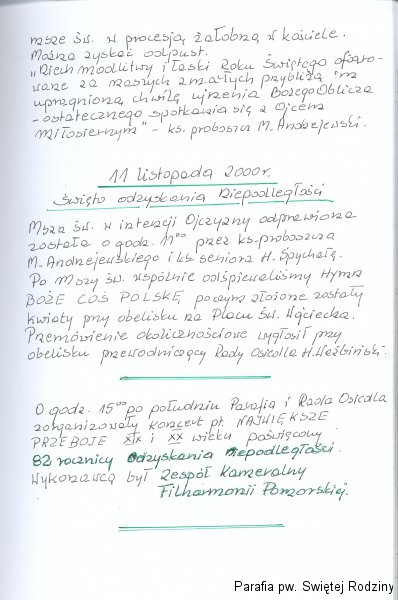 msze św. w procesją żałobną w kościele.
Można zyskać odpust.
„Niech modlitwy i łaski Roku Świętego ofiaro-
wane za naszych zmarłych przybliżą im
upragnioną chwilę ujrzenia Bożego Oblicza
- ostatecznego spotkania się z Ojcem
Miłosiernym" - ks. proboszcz M. Andrzejewski.
11 listopada 2000r.
Święto odzyskania Niepodległości
Msza św. w intencji Ojczyzny odprawiona
została o godz. 11⁰⁰ przez ks. proboszcza
M. Andrzejewskiego i ks. seniora H. Spychałę.
Po Mszy św. wspólnie odśpiewaliśmy Hymn
BOŻE COŚ POLSKĘ, poczym złożone zostały
kwiaty przy obelisku na Placu Św. Wojciecha.
Przemówienie okolicznościowe wygłosił przy
obelisku przewodniczący Rady Osiedla H. Waśbiński.
O godz. 15⁰⁰ po południu Parafia i Rada Osiedla
zorganizowały koncert pt. NAJWIĘKSZE
PRZEBOJE XIX i XX wieku poświęcony
82 rocznicy odzyskania niepodległości.
Wykonawcą był Zespół Kameralny
Filharmonii Pomorskiej.
Parafia pw. Swiętej Rodziny